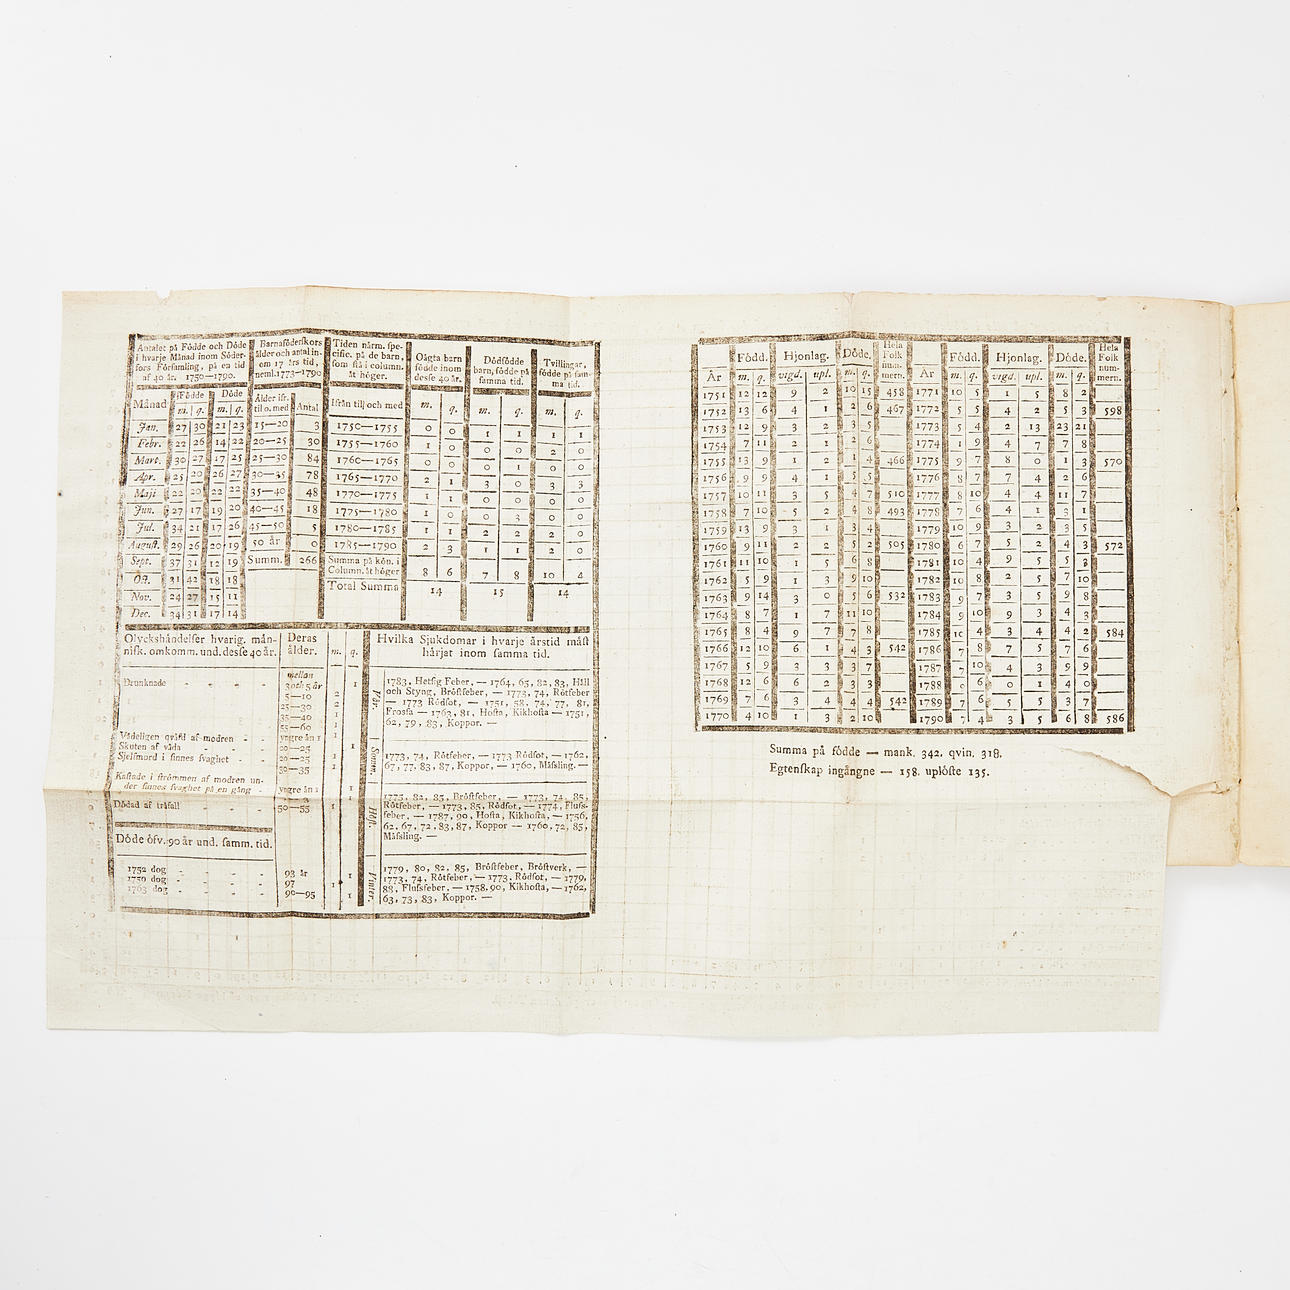 Antalet på Födde och Döde
i hvarje Månad inom Söder-
fors Församling, på en tid
af 40 år. 1750—1790.
Barnaföderſkors
ålder och antal in-
om 17 års tid,
neml. 1773—1790
Tiden närm. ſpe-
cific. på de barn,
ſom ſtå i column.
åt höger.
Oägta barn
födde inom
deſſe 40 år.
Dödfödde
barn, födde på
ſamma tid.
Tvillingar,
födde på ſam-
ma tid.
Månad Födde Döde
m. q. m. q.
Ålder ifr.
til o. med Antal
Ifrån til och med m. q. m. q. m. q.
Jan. 27 30 21 23
Febr. 22 26 14 22
Mart. 30 27 17 25
Apr. 25 20 26 27
Maji 22 20 22 22
Jun. 27 17 19 20
Jul. 34 21 17 26
Auguſt. 29 26 20 19
Sept. 37 31 12 19
Oct. 31 42 18 18
Nov. 24 27 15 11
Dec. 34 31 17 14
15—20 3
20—25 30
25—30 84
30—35 78
35—40 48
40—45 18
45—50 5
50 år 0
Summ. 266
1750—1755 0 0 1 1 1 1
1755—1760 1 0 0 0 2 0
1760—1765 0 0 0 1 0 0
1765—1770 2 1 3 0 3 3
1770—1775 1 1 0 0 0 0
1775—1780 1 0 0 3 0 0
1780—1785 1 1 2 2 2 0
1785—1790 2 3 1 1 2 0
Summa på kön. i
Column. åt höger 8 6 7 8 10 4
Total Summa 14 15 14
Olyckshändelſer hvarig. män-
niſk. omkomm. und. desſe 40 år.
Deras
ålder. m. q.
Drunknade - - -
mellan
3 och 5 år 1
5—10 2
25—30
35—40
55—60
Vådeligen qväfd af modren - - yngre än 1
Skuten af våda - - 20—25
Sjelfmord i ſinnes ſvaghet - - 20—25
30—35
Kaſtade i ſtrömmen af modren un-
der ſinnes ſvaghet på en gång - yngre än 1
Dödad af träfall - - 50—55
Döde öfv. 90 år und. ſamm. tid.
1752 dog - - - 93 år 1
1759 dog - - - 97 1
1763 dog - - - 90—95 1
Hvilka Sjukdomar i hvarje årstid mäſt
härjat inom ſamma tid.
Vår.
1783, Hetſig Feber, — 1764, 65, 82, 83, Håll
och Styng, Bröſtfeber, — 1773, 74, Rötfeber
— 1773 Rödſot, — 1751, 58, 74, 77, 81,
Froſſa — 1763, 81, Hoſta, Kikhoſta — 1751,
62, 79, 83, Koppor. —
Somm.
1773, 74, Rötfeber, — 1773 Rödſot, — 1762,
67, 77, 83, 87, Koppor, — 1760, Mäſling. —
Höſt.
1775, 82, 85, Bröſtfeber, — 1773, 74, 85,
Rötfeber, — 1773, 85, Rödſot, — 1774, Fluſs-
feber, — 1787, 90, Hoſta, Kikhoſta, — 1756,
62, 67, 72, 83, 87, Koppor — 1760, 72, 85,
Mäſling. —
Vinter.
1779, 80, 82, 85, Bröſtfeber, Bröſtverk, —
1773, 74, Rötfeber, — 1773, Rödſot, — 1779,
88, Fluſsfeber, — 1758, 90, Kikhoſta, — 1762,
63, 73, 83, Koppor. —
År Född. Hjonlag. Döde. Hela
Folk
num-
mern.
m. q. vigd. upl. m. q.
1751 12 12 9 2 10 15 458
1752 13 6 4 1 2 6 467
1753 12 9 3 2 3 5
1754 7 11 2 1 2 6
1755 13 9 1 2 1 4 466
1756 9 9 4 1 5 5
1757 10 11 3 5 4 7 510
1758 7 10 5 2 4 8 493
1759 13 9 3 1 3 4
1760 9 11 2 2 5 2 505
1761 11 10 1 5 6 8
1762 5 9 1 3 9 10
1763 9 14 3 0 5 6 532
1764 8 7 1 7 11 10
1765 8 4 9 7 7 8
1766 12 10 6 1 4 3 542
1767 5 9 3 3 7 7
1768 12 6 6 2 3 3
1769 7 6 3 4 4 4 542
1770 4 10 1 3 2 10
År Född. Hjonlag. Döde. Hela
Folk
num-
mern.
m. q. vigd. upl. m. q.
1771 10 5 1 5 8 2
1772 5 5 4 2 5 3 598
1773 5 4 2 13 23 21
1774 1 9 4 7 7 8
1775 9 7 8 0 1 3 570
1776 8 7 7 4 2 6
1777 8 10 4 4 11 7
1778 7 6 4 1 3 1
1779 10 9 3 2 3 5
1780 6 7 5 2 4 3 572
1781 10 4 9 5 5
1782 10 8 2 5 7 10
1783 9 7 3 5 9 8
1784 9 10 9 3 4 3
1785 10 4 3 4 4 2 584
1786 7 8 7 5 7 6
1787 7 10 4 3 9 9
1788 6 0 1 4 0
1789 7 6 5 5 3 7
1790 7 4 3 5 6 8 586
Summa på födde — mank. 342. qvin. 318.
Egtenſkap ingångne — 158. uplöſte 135.